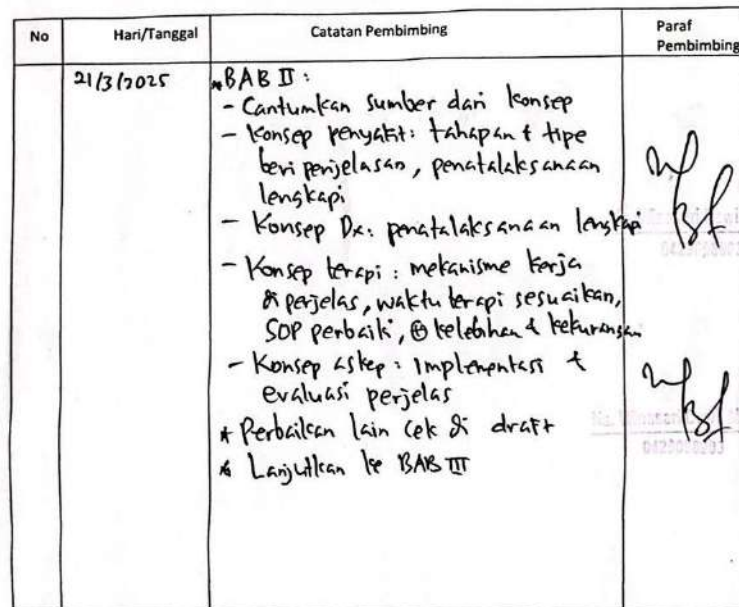 No
Hari/Tanggal
Catatan Pembimbing
Paraf
Pembimbing
21/3/2025
* BAB II :
- Cantumkan sumber dari konsep
- Konsep penyakit : tahapan & tipe
beri penjelasan, penatalaksanaan
lengkapi
- Konsep Dx : penatalaksanaan lengkapi
- Konsep terapi : mekanisme kerja
diperjelas, waktu terapi sesuaikan,
SOP perbaiki, kelebihan & kekurangan
- Konsep askep : Implementasi &
evaluasi perjelas
* Perbaikan lain cek di draft
* Lanjutkan ke BAB III